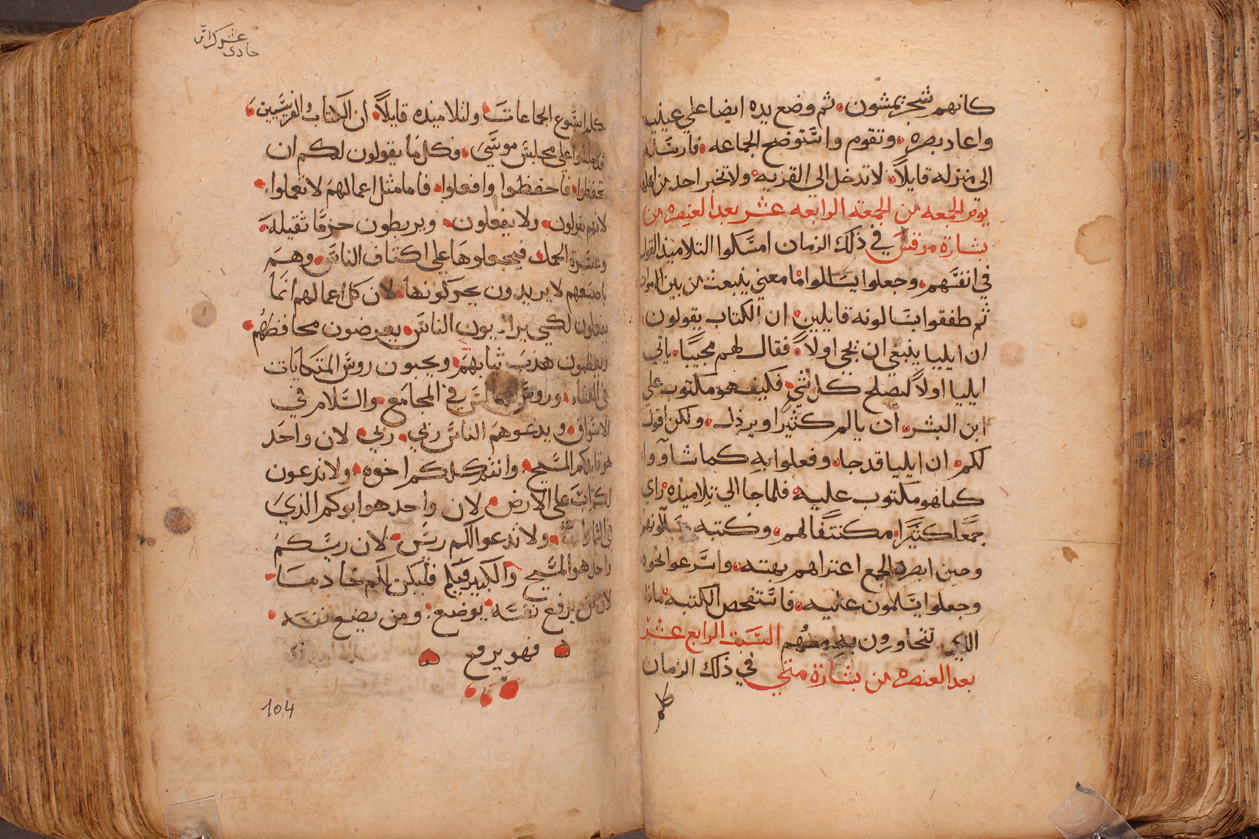 كانهم شجر يمشون ثم وضع يده ايضا علي عينيه
واعاد بصره وتقوم واستوضح الجماعه فارسله
الى منزله قايلاً لا تدخل الى القريه ولا تخبر احد من اهلها
يوم الجمعه من الجمعة الرابعه عشر بعد العنصره من
بشارة مرقس في ذلك الزمان امسكوا التلاميذ القول
في انفسهم وجعلوا يسالوا ما معني ينبعث من بين الاموات
ثم طفقوا يسالونه قايلين ان الكتاب يقولون
ان ايليا ينبغي ان يجي اولاً فقال لهم مجيبًا ياتي
ايليا اولاً ليصلح كل شي فكيف هو مكتوب على
ابن البشر ان يالم كثيرًا ويرذل ولكن اقول
لكم ان ايليا قد جا وفعلوا به كما شاووا
كما هو مكتوب عليه فلما جا الى تلاميذه راى
جمعًا كثيرًا مكتنفًا لهم وكتبه يسألونهم
وحين ابصره الجمع اعتراهم بهته واسرعوا نحوه
وجعلوا يسلمون عليه فاستفحص الكتبه ماذا
الذي تتحاورون به معهم السبت الرابع عشر
بعد العنصره من بشارة متي في ذلك الزمان
حادى عشر كراس
كلم ايسوع الجماعات ولتلاميذه قايلاً ان الكتاب والفريسيين
جلسوا على مجلس موسى وكل ما يقولون لكم ان
تحفظوا فاحفظوا وافعلوا فاما مثل اعمالهم لا تعملوا
لانهم يقولون ولا يفعلون ويربطون حزمًا ثقيلة
وعسرة الحمل فيجعلوها على اكتاف الناس وهم
باصبعهم لا يريدون يحركونها لان كل اعمالهم انما
يعملون لكي يرايون الناس يعرضون محافظهم
ويعظمون هدب ثيابهم ويحبون روس المتكايات
في العشاء وروس المجالس في المجامع والسلام في
الاسواق ويدعوهم الناس ربي ربي لان واحد
هو قايدكم المسيح وانتم كلكم اخوه ولا تدعون
لكم اب على الارض لان واحد هو ابوكم الذي
في السماوات ولا تدعوا لكم ريس لان ريسكم
واحد هو المسيح والكبير فيكم فليكن لكم خادمًا
لان من يرفع نفسه يوضع ومن يضع نفسه
فهو يرفع
104